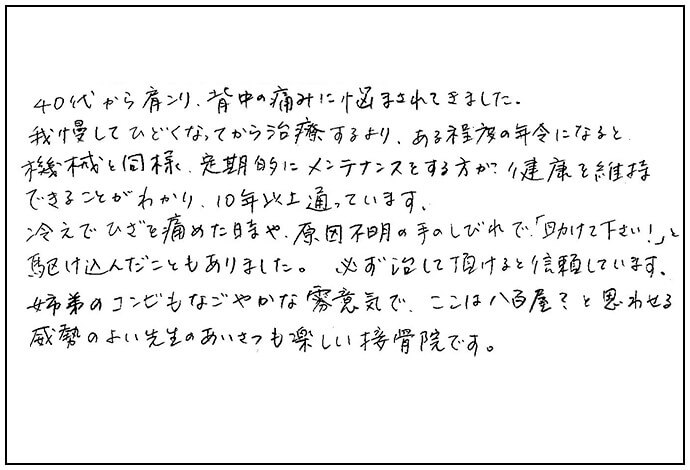 40代から肩コリ、背中の痛みに悩まされてきました。
我慢してひどくなってから治療するより、ある程度の年令になると
機械と同様、定期的にメンテナンスをする方が、健康を維持
できることがわかり、10年以上通っています。
冷えでひざを痛めた時や、原因不明の手のしびれで、「助けて下さい!」と
駆け込んだこともありました。 必ず治して頂けると信頼しています。
姉弟のコンビもなごやかな雰意気で、ここは八百屋?と思わせる
威勢のよい先生のあいさつも楽しい接骨院です。